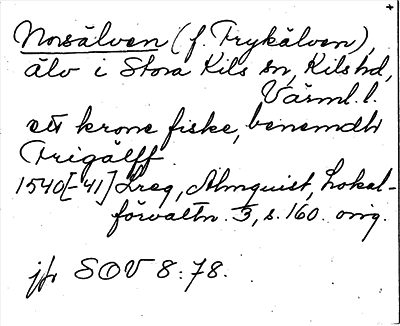 Norsälven (f. Frykälven),
älv i Stora Kils sn, Kils hd,
Värml. l.
ett krone fiske, benemdt
Frigälff.
1540[-41] Lreg, Almquist, Lokal-
förvaltn. 3, s. 160. orig.
jfr SOV 8:78.